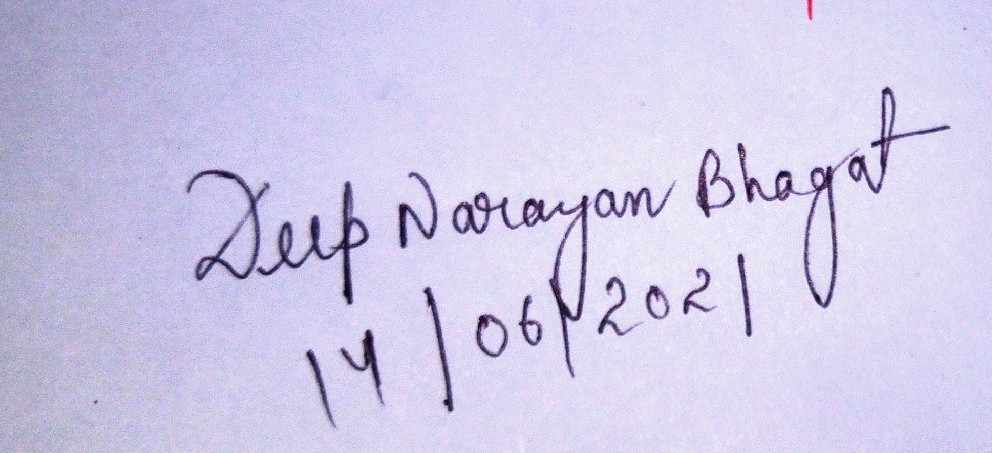 Deep Narayan Bhagat
14/06/2021